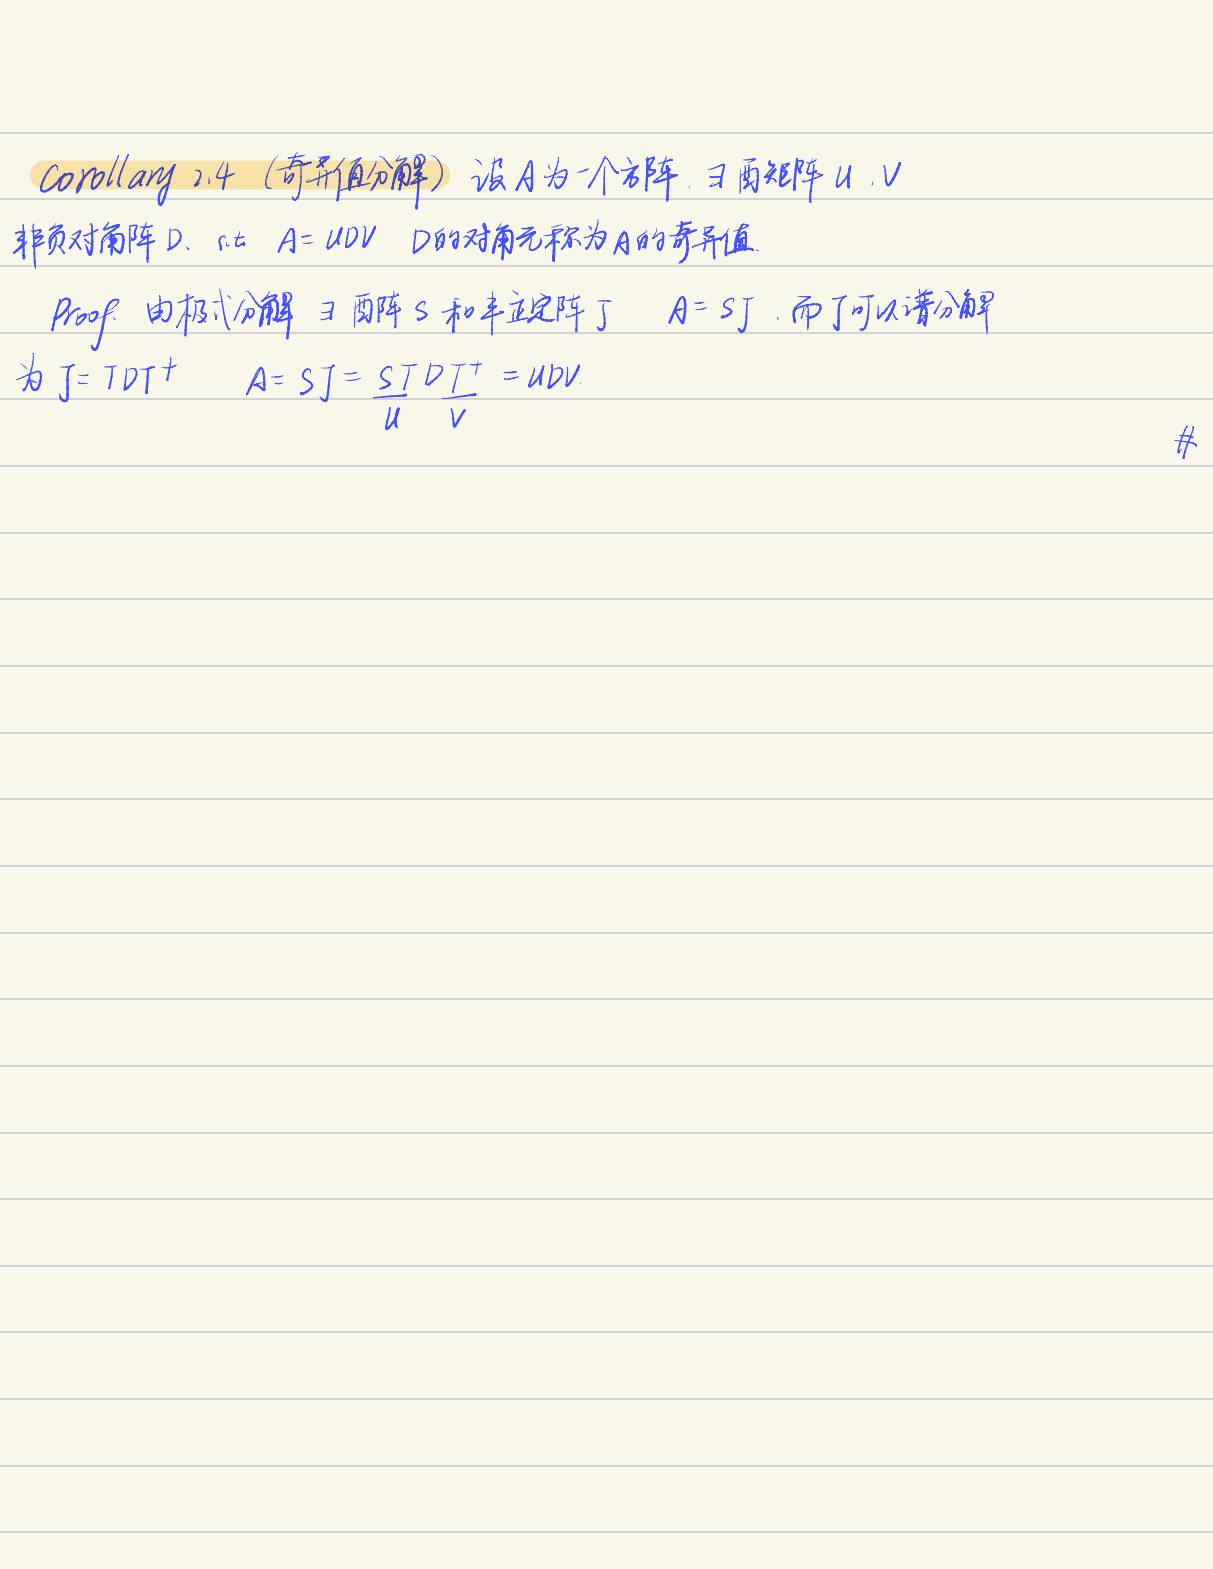 Corollary 2.4 (奇异值分解) 设 A 为一个方阵. ∃ 酉矩阵 U, V
非负对角阵 D. s.t. A = UDV D的对角元称为A的奇异值.
Proof. 由极式分解 ∃ 酉阵 S 和半正定阵 J A = SJ. 而J可以谱分解
为 J = TDT† A = SJ = ST D T† = UDV.
U V
#